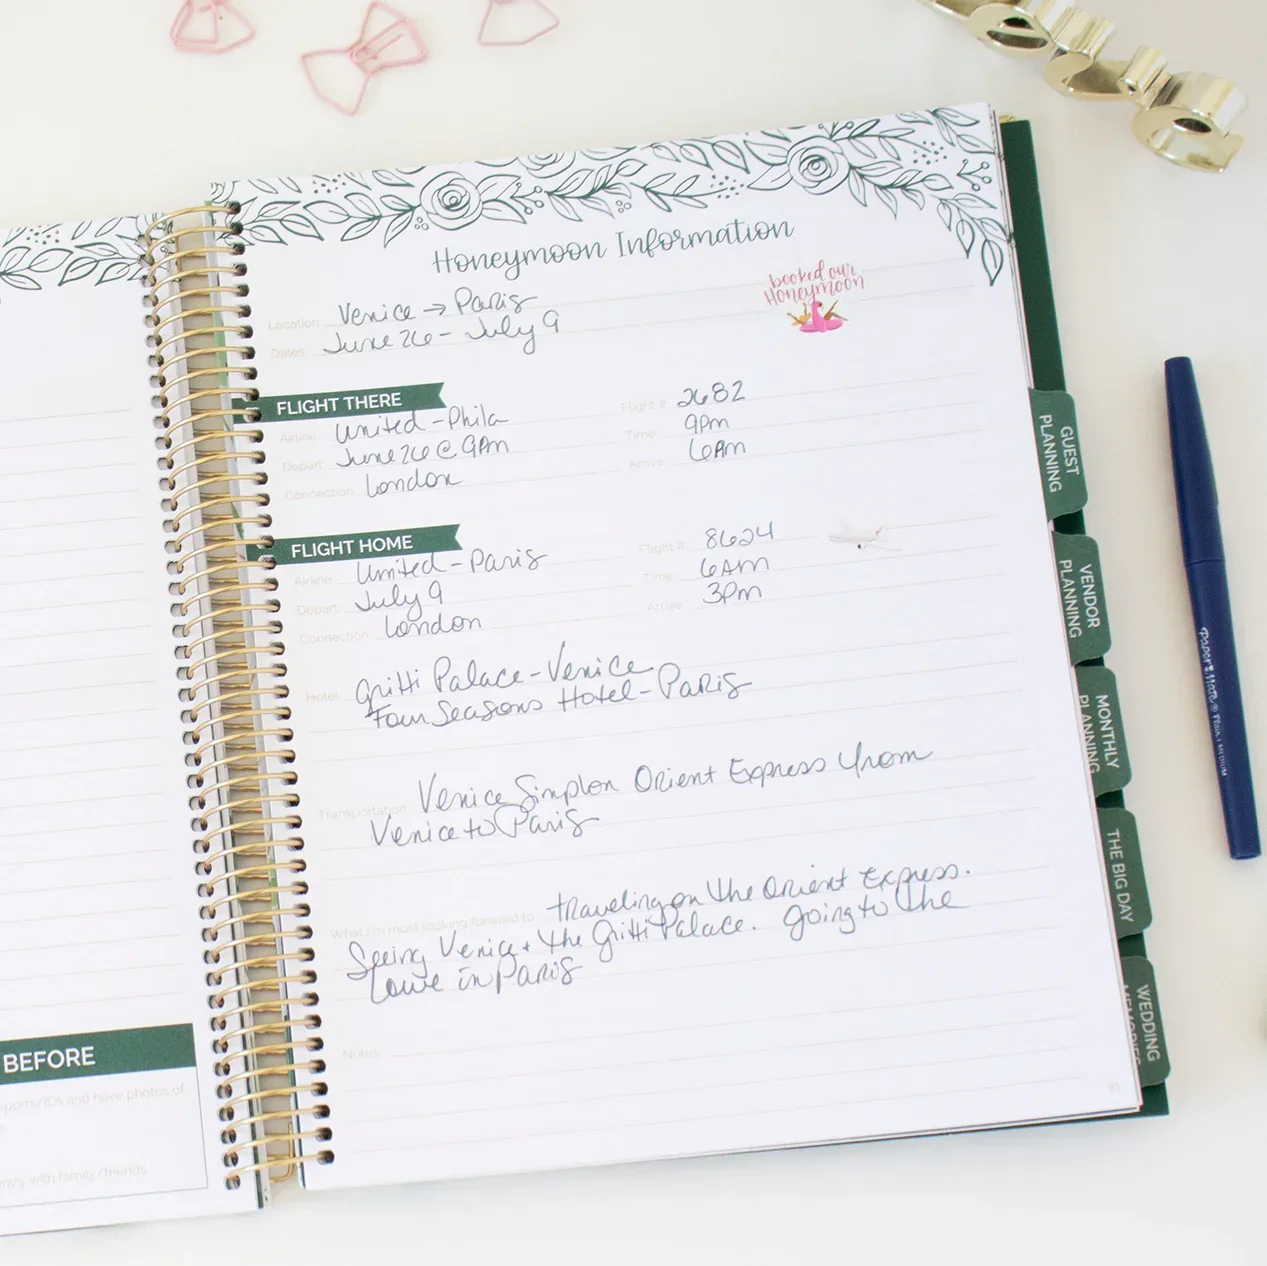 Honeymoon Information
booked our
Honeymoon
Location Venice → Paris
Dates June 26 - July 9
FLIGHT THERE
Airline United - Phila Flight # 2682
Depart June 26 @ 9pm Time 9pm
Connection London Arrive 6Am
FLIGHT HOME
Airline United - Paris Flight # 8624
Depart July 9 Time 6AM
Connection London Arrive 3pm
Hotel Gritti Palace - Venice
Four Seasons Hotel - Paris
Transportation Venice Simplon Orient Express from
Venice to Paris
What I'm most looking forward to traveling on the Orient Express.
Seeing Venice + the Gritti Palace. going to the
Louve in Paris
Notes
BEFORE
and have photos of
with family/friends
GUEST
PLANNING
VENDOR
PLANNING
MONTHLY
PLANNING
THE BIG DAY
WEDDING
MEMORIES
Paper:Mate® Flair • MEDIUM